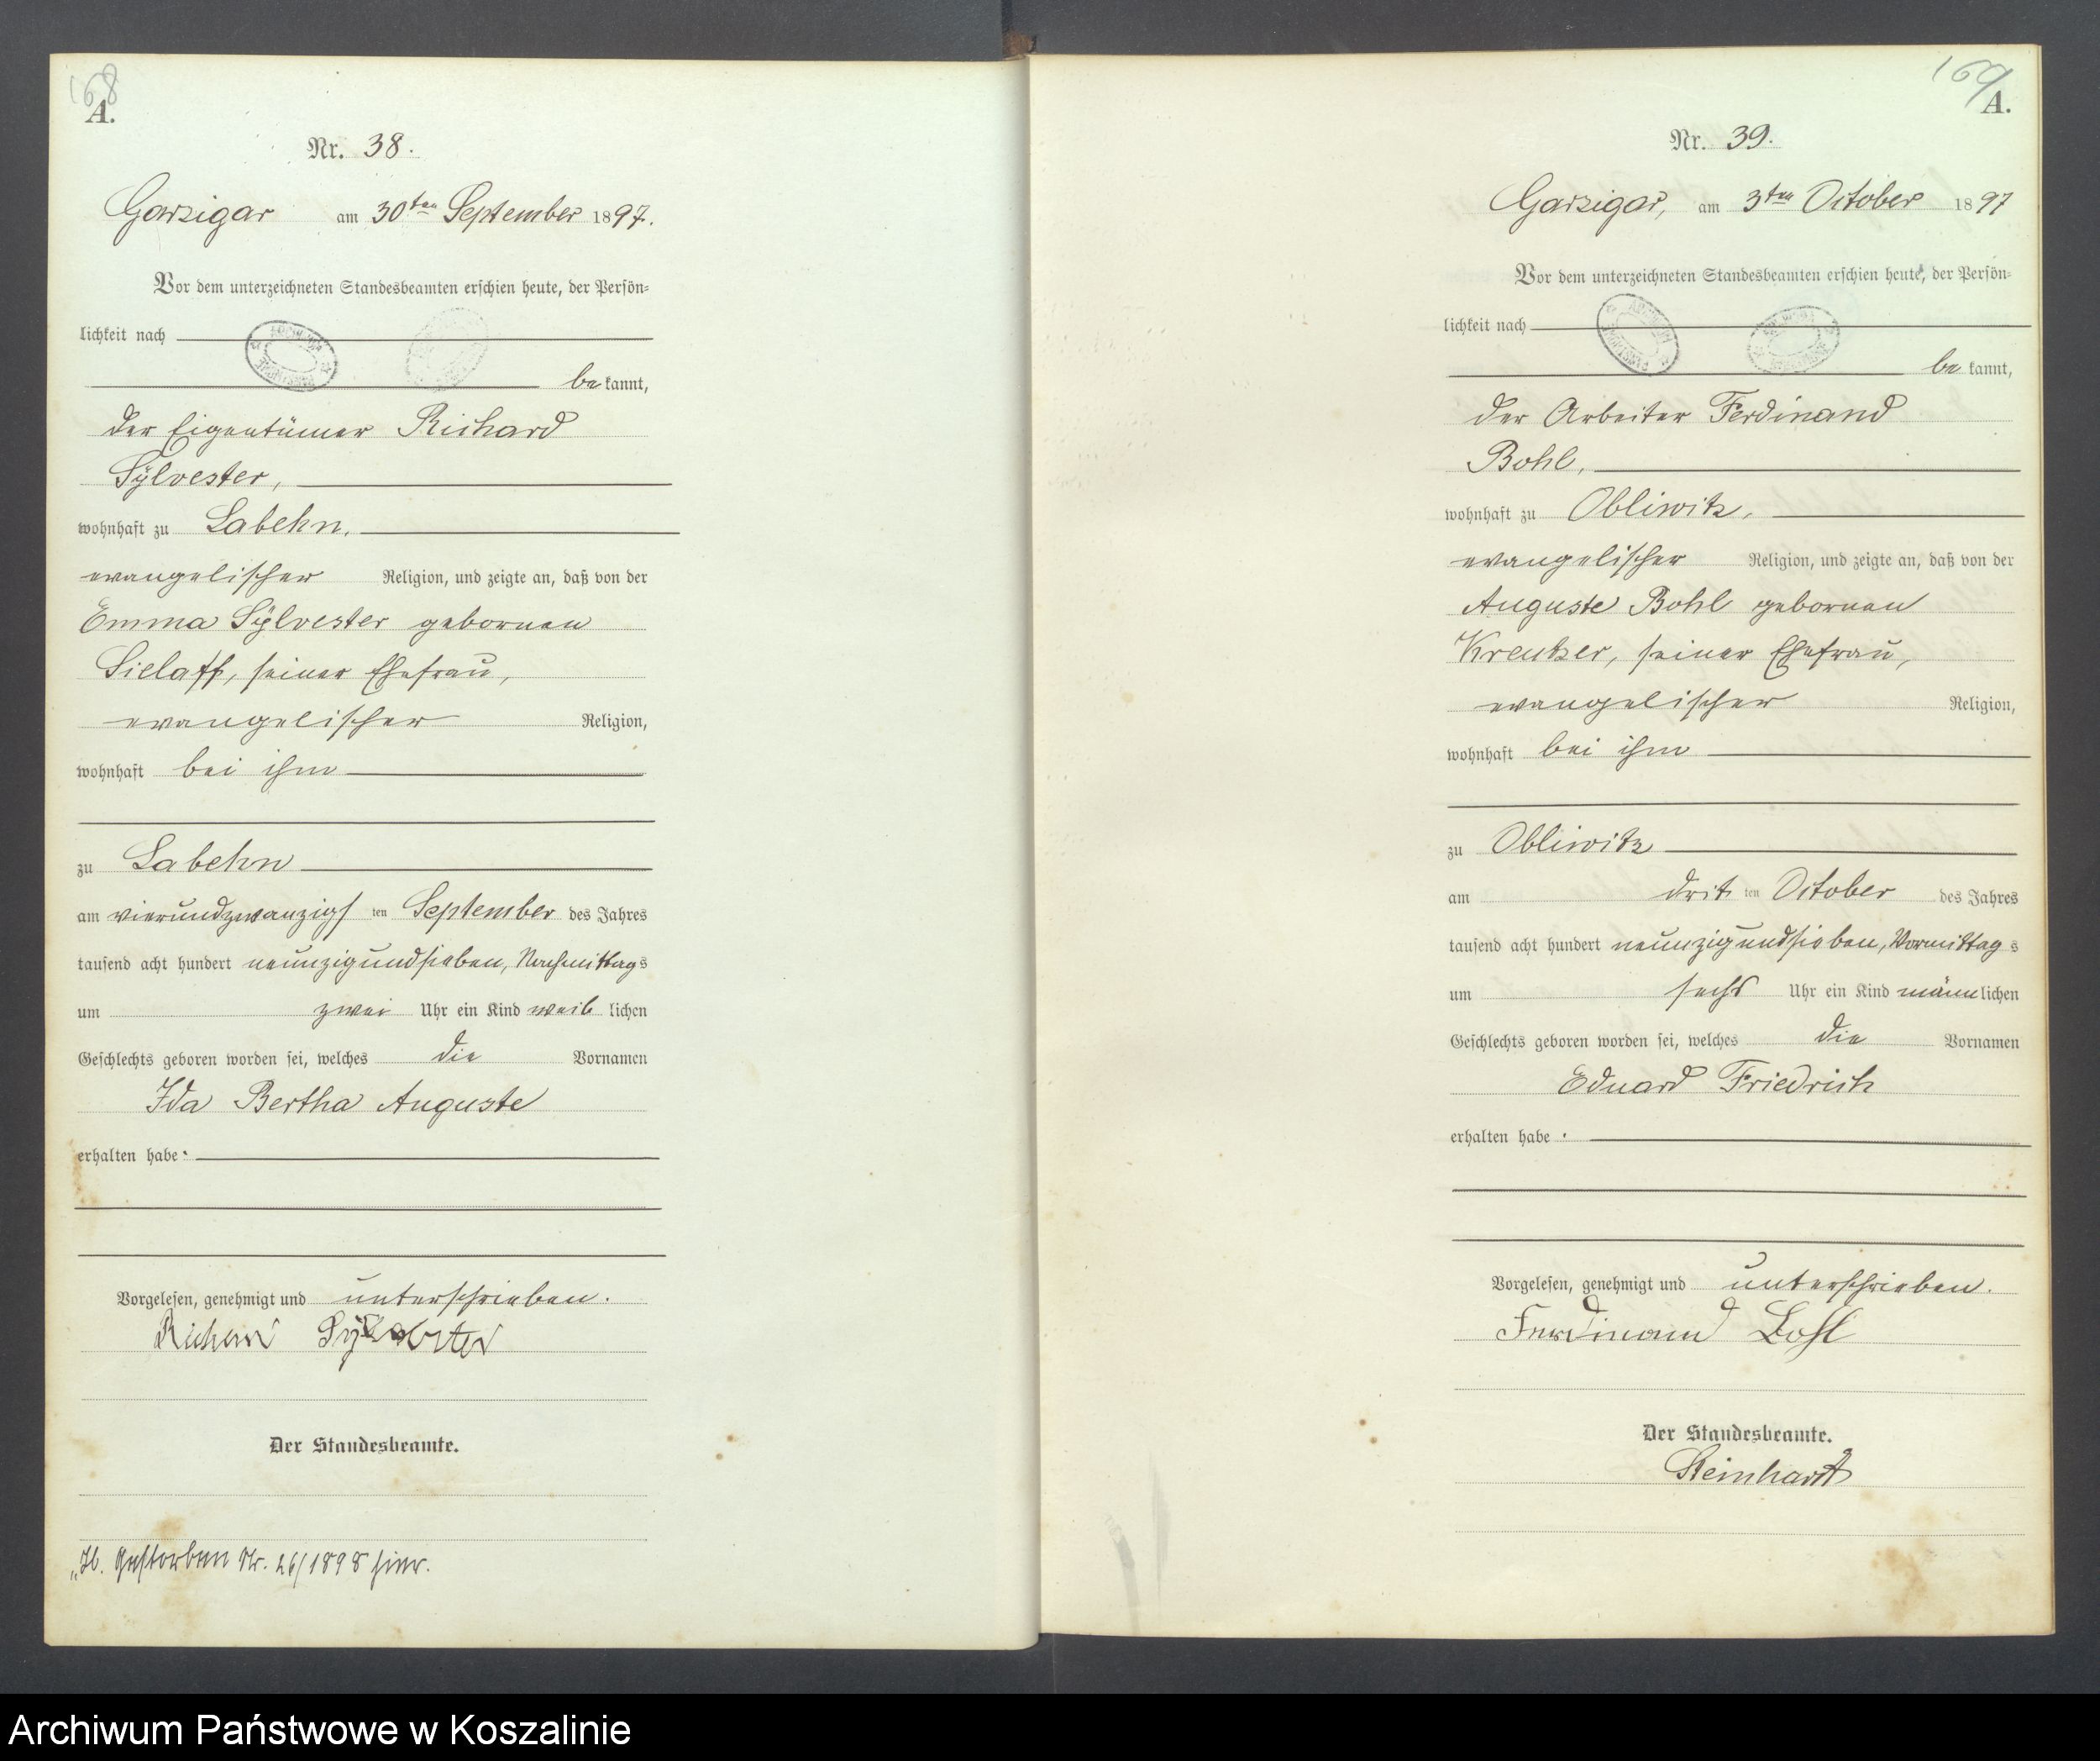 168
A.
Nr. 38.
Garzigar am 30ten September 1897.
Vor dem unterzeichneten Standesbeamten erschien heute, der Persön-
lichkeit nach
bekannt,
der Eigentümer Richard
Sÿlvester,
wohnhaft zu Labehn,
evangelischer Religion, und zeigte an, daß von der
Emma Sÿlvester gebornen
Sielaff, seiner Ehefrau,
evangelischer Religion,
wohnhaft bei ihm
zu Labehn
am vierundzwanzigsten September des Jahres
tausend acht hundert neunzigundsieben, Nachmittags
um zwei Uhr ein Kind weiblichen
Geschlechts geboren worden sei, welches die Vornamen
Ida Bertha Auguste
erhalten habe.
Vorgelesen, genehmigt und unterschrieben.
Richard Sylvester
Der Standesbeamte.
gestorben Nr. 26/1898 hier.
169
A.
Nr. 39.
Garzigar, am 3ten October 1897
Vor dem unterzeichneten Standesbeamten erschien heute, der Persön-
lichkeit nach
bekannt,
der Arbeiter Ferdinand
Bohl,
wohnhaft zu Obliwitz,
evangelischer Religion, und zeigte an, daß von der
Auguste Bohl gebornen
Kreutzer, seiner Ehefrau,
evangelischer Religion,
wohnhaft bei ihm
zu Obliwitz
am dritten October des Jahres
tausend acht hundert neunzigundsieben, Vormittags
um sechs Uhr ein Kind männlichen
Geschlechts geboren worden sei, welches die Vornamen
Eduard Friedrich
erhalten habe.
Vorgelesen, genehmigt und unterschrieben.
Ferdinand Bohl
Der Standesbeamte.
Steinhardt
Archiwum Państwowe w Koszalinie